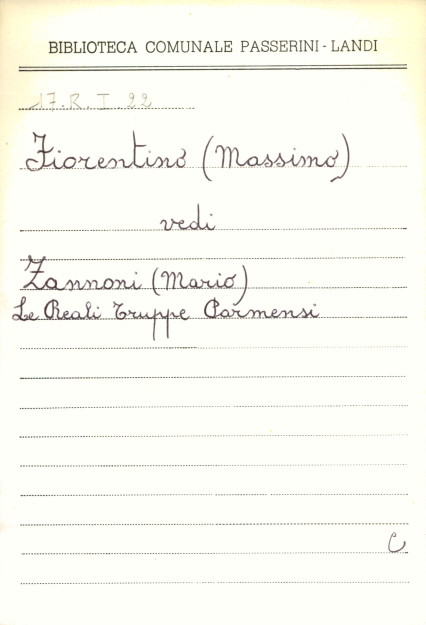 BIBLIOTECA COMUNALE PASSERINI - LANDI
17. R. I. 22
Fiorentino (Massimo)
vedi
Zannoni (Mario)
Le Reali Truppe Parmensi
C